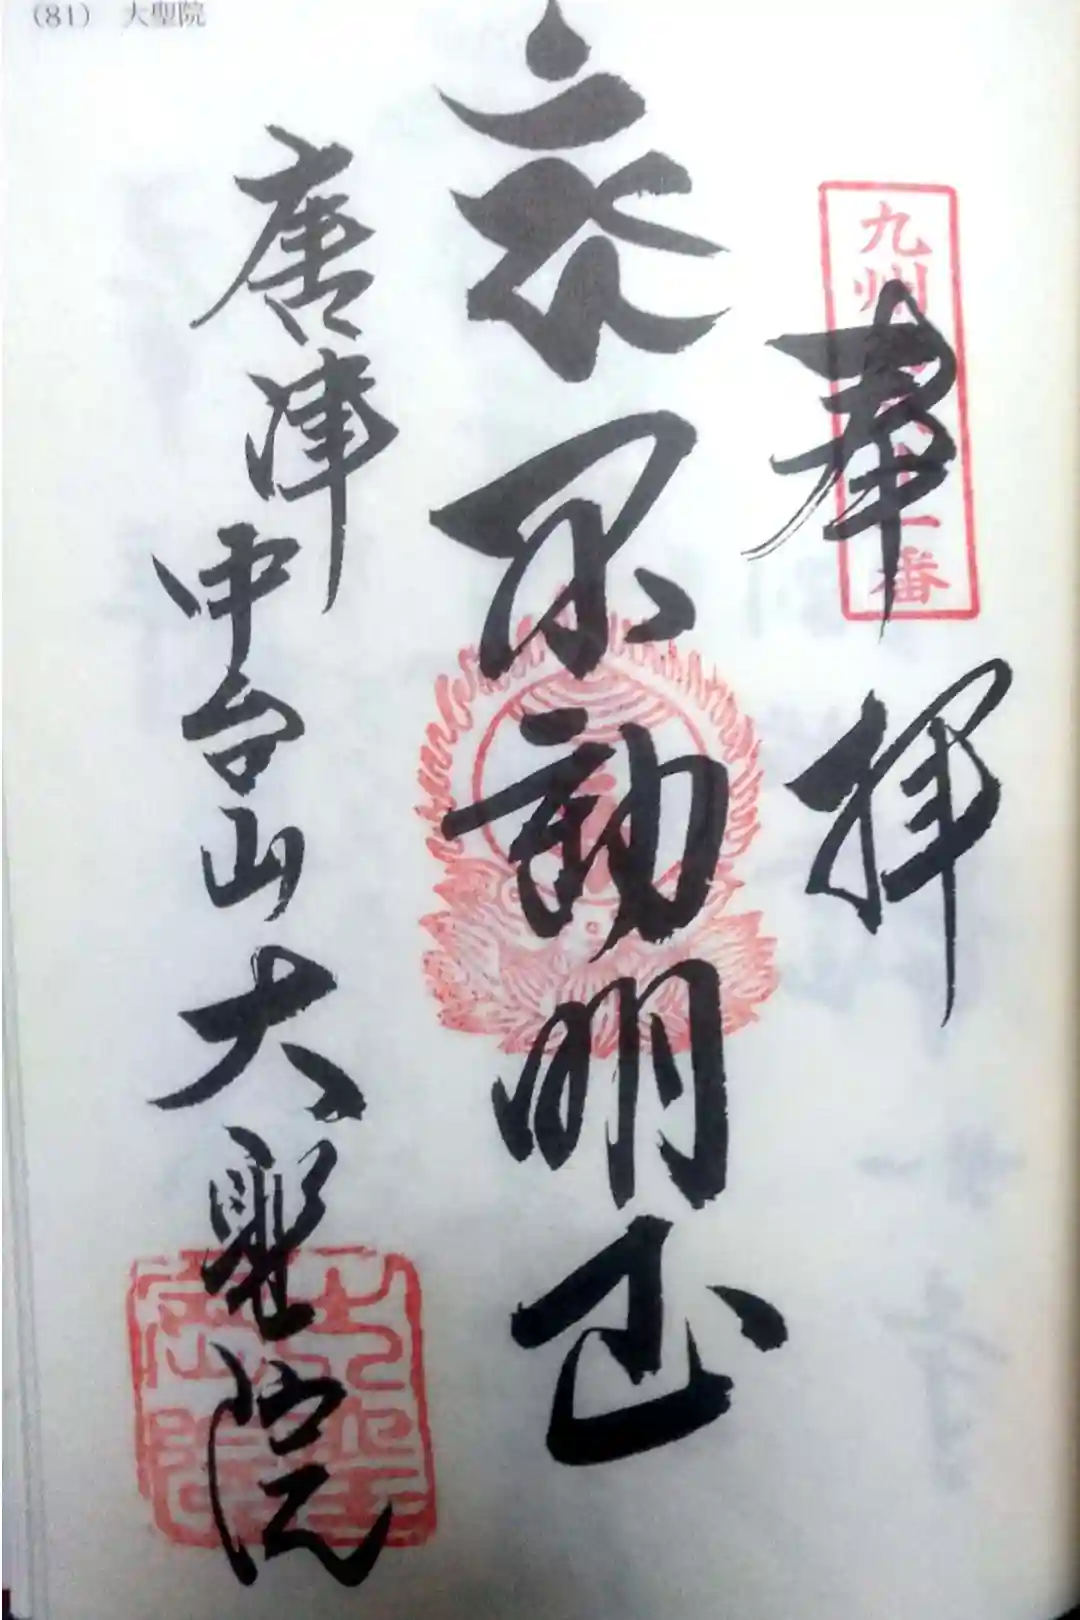 (81) 大聖院
九州
一番
奉拝
不動明王
唐津中台山大聖院